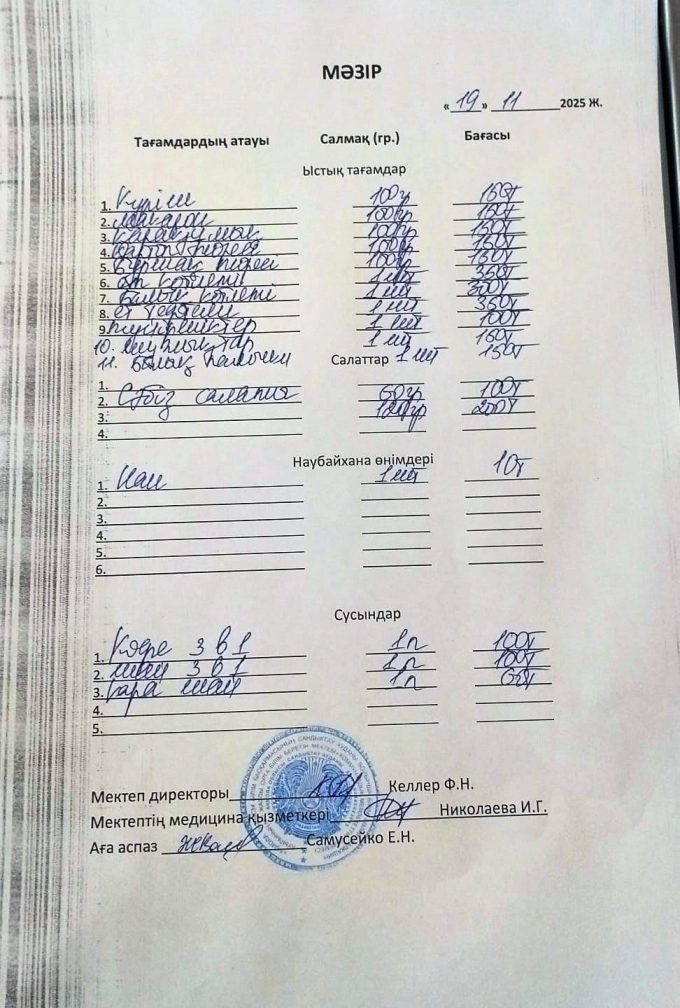 МӘЗІР
« 19 » 11 2025 Ж.
Тағамдардың атауы Салмақ (гр.) Бағасы
Ыстық тағамдар
1. Күріш 100гр 150т
2. Макарон 100гр 150т
3. Қарақұмық 100гр 150т
4. Картоп пюреся 100гр 150т
5. Бұршақ пюресі 100гр 150т
6. ет котлеті 1 шт 350т
7. Балық котлеті 1 шт 300т
8. ет тефтели 1 шт 350т
9. 1 шт 100т
10. шұжықтар 1 шт 150т
11. Балық палочки 1 шт 150т
Салаттар
1.
2. Сәбіз салатия 60гр 100т
3. 200т
4.
Наубайхана өнімдері
1. Нан 1 шт 10т
2.
3.
4.
5.
6.
Сусындар
1. Кофе 3 в 1 1п 100т
2. шай 3 в 1 1п 100т
3. қара шай 1п
4.
5.
Мектеп директоры Келлер Ф.Н.
Мектептің медицина қызметкері Николаева И.Г.
Аға аспаз Самусейко Е.Н.